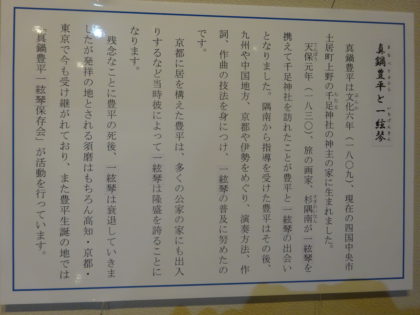 真鍋豊平と一絃琴
真鍋豊平は文化六年（一八〇九）、現在の四国中央市
土居町上野の千足神社の神主の家に生まれました。
天保元年（一八三〇）、旅の画家、杉隅南が一絃琴を
携えて千足神社を訪れたことが豊平と一絃琴の出会い
となりました。隅南から指導を受けた豊平はその後、
九州や中国地方、京都や伊勢をめぐり、演奏方法、作
詞、作曲の技法を身につけ、一絃琴の普及に努めたの
です。
京都に居を構えた豊平は、多くの公家の家にも出入
りするなど当時彼によって一絃琴は隆盛を誇ることに
なります。
残念なことに豊平の死後、一絃琴は衰退していきま
したが発祥の地とされる須磨はもちろん高知・京都・
東京で今も受け継がれており、また豊平生誕の地では
「真鍋豊平一絃琴保存会」が活動を行っています。